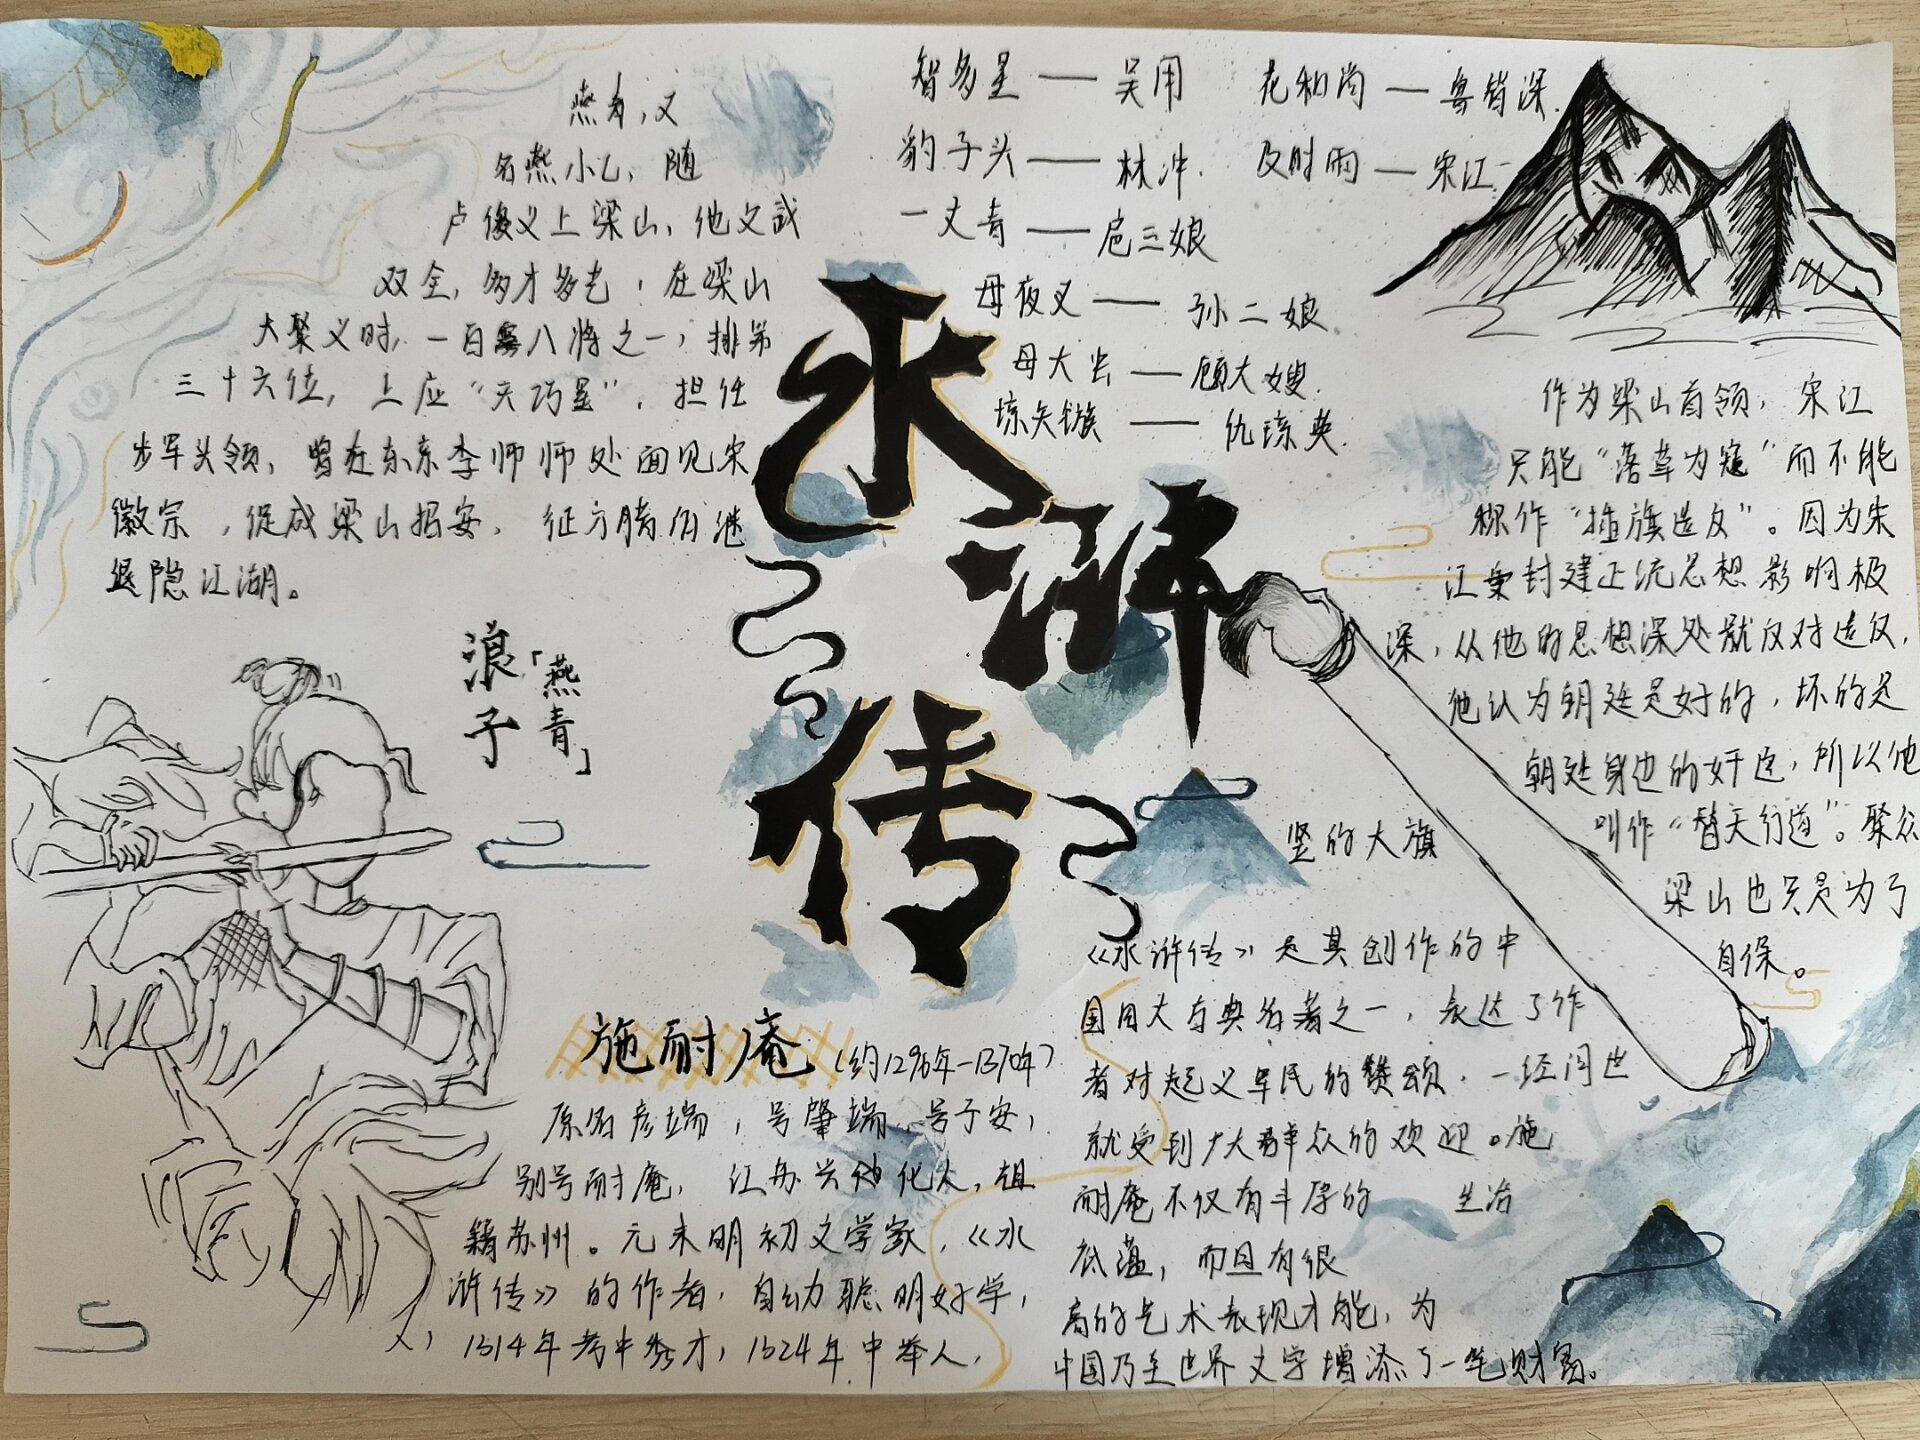 燕青，又
名燕小乙，随
卢俊义上梁山，他文武
双全，多才多艺，在梁山
大聚义时，一百零八将之一，排第
三十六位，上应“天巧星”，担任
步军头领，曾在东京李师师处面见宋
徽宗，促成梁山招安，征方腊后继
退隐江湖。
浪子
「燕青」
智多星——吴用
豹子头——林冲.
一丈青——扈三娘
母夜叉——孙二娘.
母大虫——顾大嫂.
琼矢镞——仇琼英.
花和尚——鲁智深.
及时雨——宋江.
水浒传
作为梁山首领，宋江
只能“落草为寇”而不能
称作“插旗造反”。因为宋
江受封建正统思想影响极
深，从他的思想深处就反对造反，
他认为朝廷是好的，坏的是
朝廷身边的奸臣，所以他
竖的大旗
叫作“替天行道”。聚众
梁山也只是为了
自保。
施耐庵（约1296年-1370年）
原名彦端，号肇端，号子安，
别号耐庵，江苏兴化人，祖
籍苏州。元末明初文学家，《水
浒传》的作者，自幼聪明好学，
1314年考中秀才，1324年中举人，
《水浒传》是其创作的中
国四大古典名著之一，表达了作
者对起义军民的赞颂，一经问世
就受到广大群众的欢迎。施
耐庵不仅有丰厚的 生活
底蕴，而且有很
高的艺术表现才能，为
中国乃至世界文字增添了一笔财富。